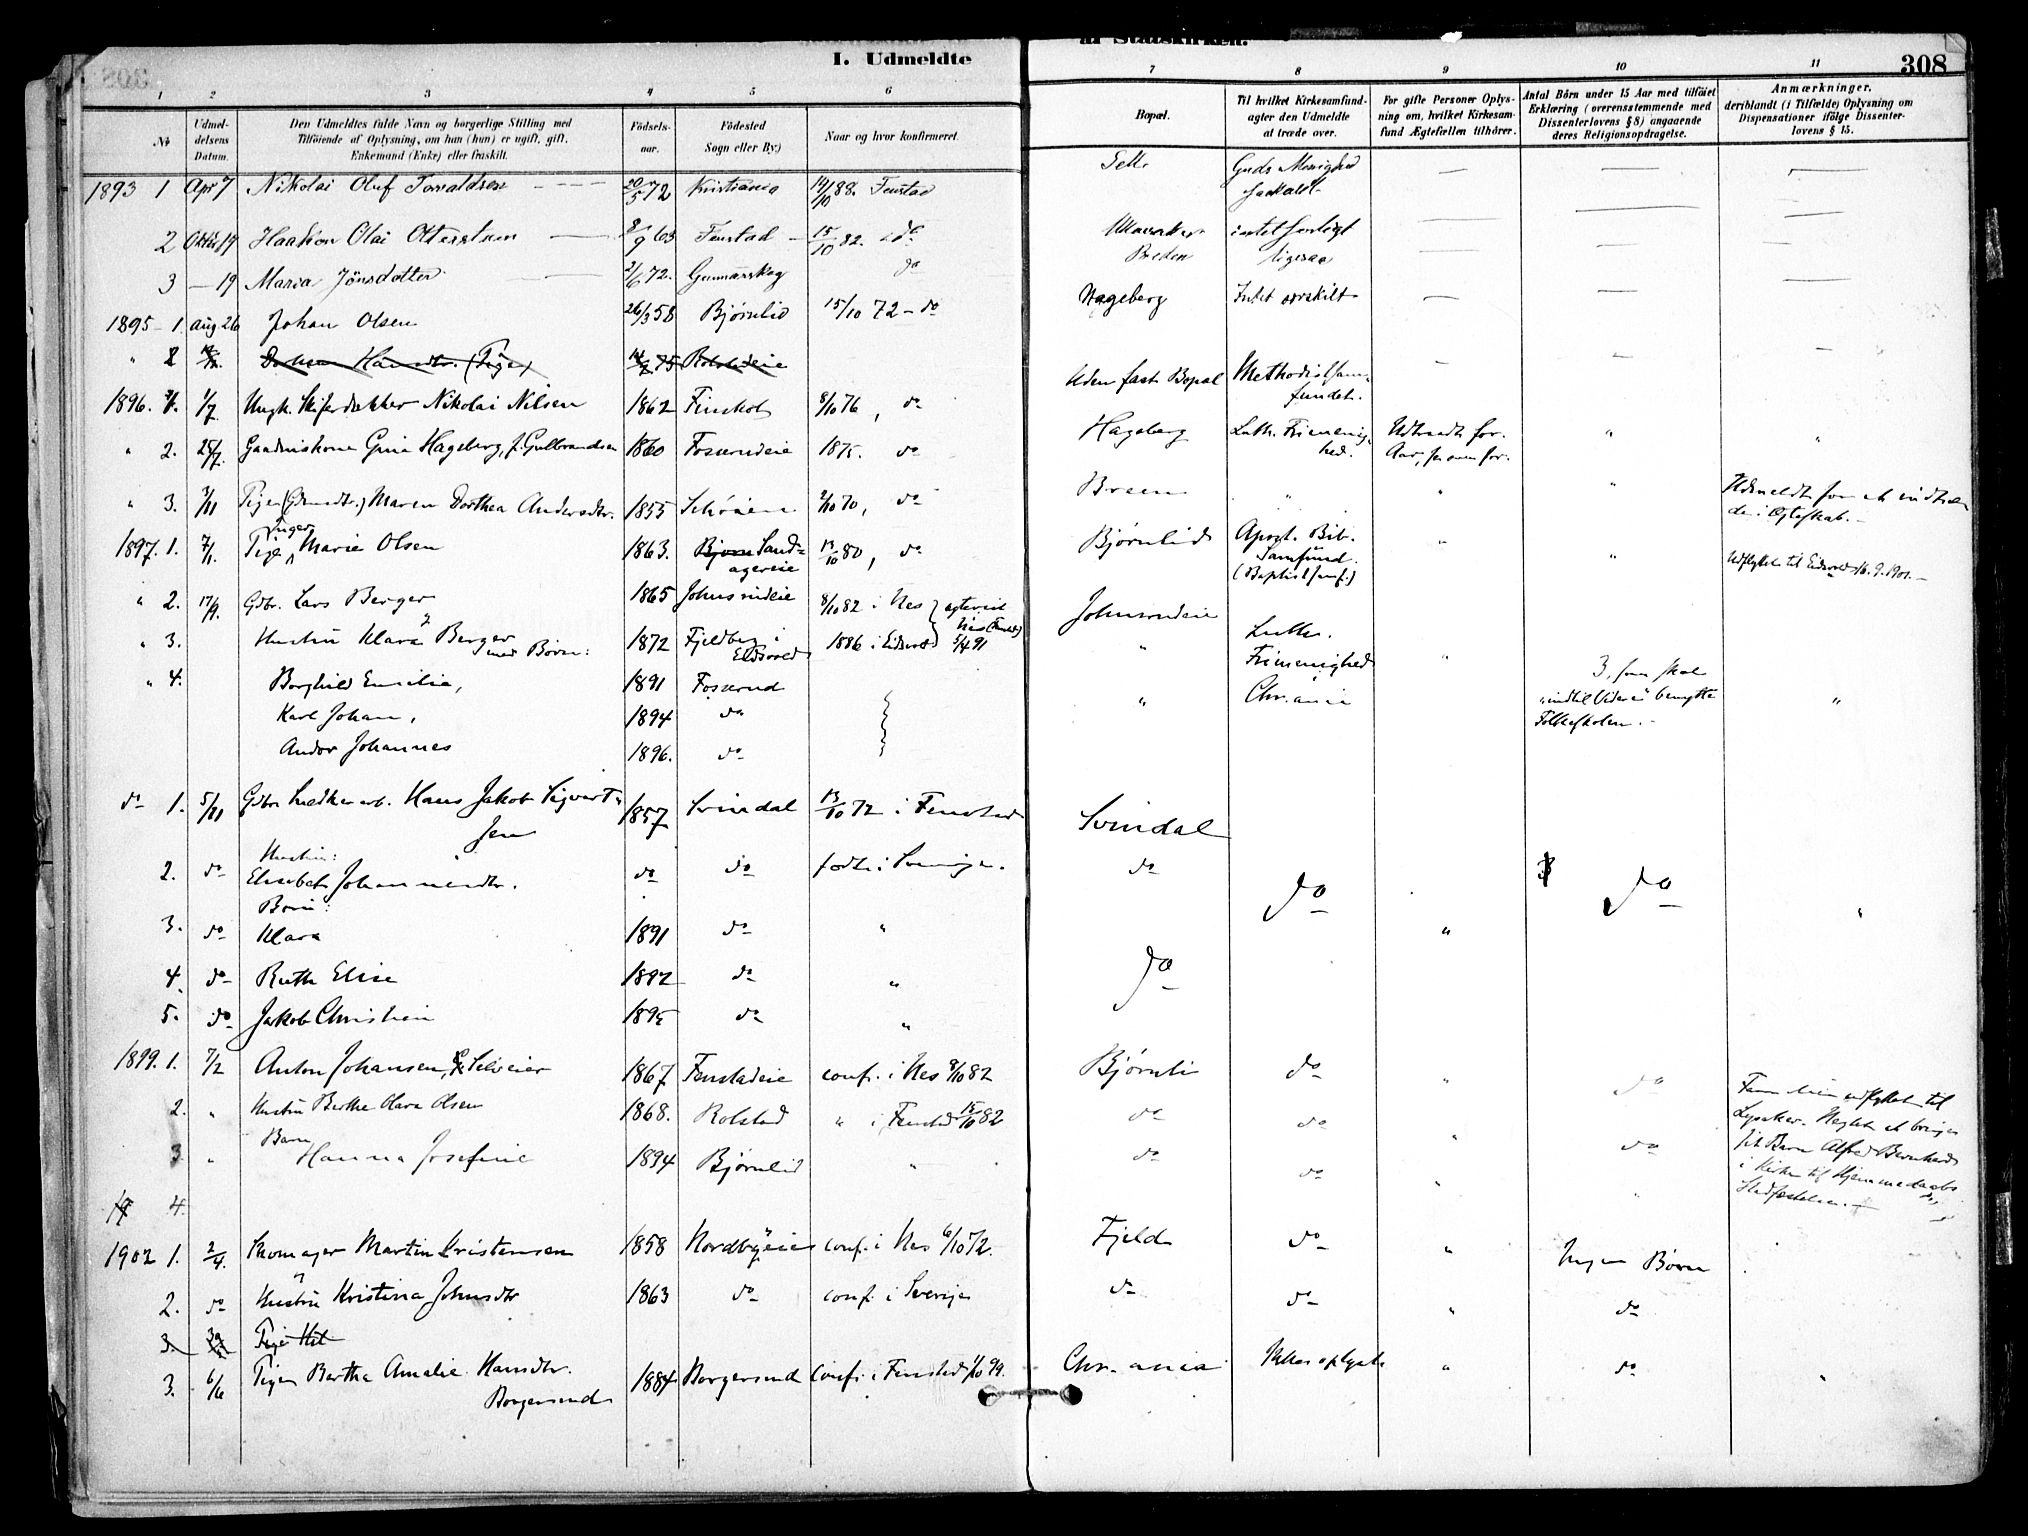 I. Udmeldte
af Statskirken.
308
1 2 3 4 5 6 7 8 9 10 11
No
Udmeldelsens Datum.
Den Udmeldtes fulde Navn og borgerlige Stilling med
Tilföiende af Oplysning, om han (hun) er ugift, gift,
Enkemand (Enke) eller fraskilt.
Födselsaar.
Födested
Sogn eller By.)
Naar og hvor konfirmeret.
Bopæl.
Til hvilket Kirkesamfund-
agter den Udmeldte
at træde over.
For gifte Personer Oplys-
ning om, hvilket Kirkesam-
fund Ægtefællen tilhörer.
Antal Börn under 15 Aar med tilföiet
Erklæring (overensstemmende med
Dissenterlovens § 8) angaaende
deres Religionsopdragelse.
Anmærkninger,
deriblandt (i Tilfælde) Oplysning om
Dispensationer ifölge Dissenter-
lovens § 15.
1893 1 Apr 7 Nikolai Oluf 20/5 72 Kristiania 14/10 88. Fenstad Guds Menighed
saakaldt
2 Oktbr 19 Haakon Olai Ottersten 8/9 63 Fenstad 15/10 82. do intet
3 — 19 Maria Jönsdatter 2/6 72. Gunnarskog do Breden ligesaa
1895 1. Aug 26 Johan Olsen 26/3 58 Bjørnlid 15/10 72 - do Hageberg Intet særskilt
" 2 Hansdtr. (Pige) 75 Rolstadeie
1896. 1. 1/7 Ungk. Skiferdækker Nikolai Nilsen 1862 8/10 76, do Uden fast Bopæl Methodistsam-
fundet.
" 2. 25/7 Gaardmandskone Gina Hageberg, f. Gulbrandsen 1860 Fosserudeie 1875. do Hageberg Luth. Frimenig-
hed. Udtraadt for.
Aar,
" 3. 3/11 Pigen (Grmdtr.) Maren Dorthea Andersdtr. 1855 2/10 70, do Breen " " " Udmeldt for at indtræ-
de i Ægteskab. -
1897. 1. 7/1. Pige Inger Marie Olsen 1863. Bjørn Sand-
agereie 13/10 80, do Bjørnlid Apost. Bib.
Samfund.
(Baptistsamf.) " " Udflyttet til Eidsvold 16. 9. 1901. -
" 2. 17/9. Gbr. Lars Berger 1865 Johnsrudeie 8/10 82 i Nes Johnsrudeie
" 3. Hustru Klara Berger
med Børn: 1872 Fjeldberg i
Eidsvold 1886 i Eidsvold 5/4 91 " Luth.
Frimenighed
Chr.ania
" 4. Borghild Emilie, 1891 Fosserud " 3, som skal
"indtil Videre" benytte
Folkeskolen. - "
Karl Johan, 1894 do
Andor Johannes 1896. do
do 1. 5/11 Gbr. Snedkerarb. Hans Jakob Sigvart-
sen 1857 Svindal 13/10 72 i Fenstad Svindal
2. do Hustru:
Elisabet Johannesdtr. do do født i Sverige. do do do
Børn:
3. do Klara 1891 do " " "
4. do Ruth Elise 1892 do " do
5. do Jakob Christian 1895 do "
1899. 1. 7/2 Anton Johansen, Selveier 1867 Fenstadeie conf. i Nes 8/10 82 Bjørnli do " do
2. " Hustru Berthe Olava Olsen 1868. Rolstad " i Fenstad 15/10 82 do do " do
3. " Barn
Hanna Josefine 1894 Bjørnlid " do do " "
Familien udflyttet til
Lysaker. Negtet at bringe
sit Barn Alfred Bernhard
i Kirke til Hjemmedaabs
Stadfæstelse.
4.
1902 1. 2/4. Skomager Martin Kristensen 1858 Nordbyeie conf. i Nes 6/10 72. Fjeld do " Ingen Børn
2. do Hustru Kristina Johnsdtr 1863 do conf. i Sverige do do " do
3. Pige
3. 6/6 Pigen Bertha Amalie Hansdtr.
Borgersund 1884 Borgersund conf. i Fenstad 1/10 99. Chr.ania Ikke oplyst " do "